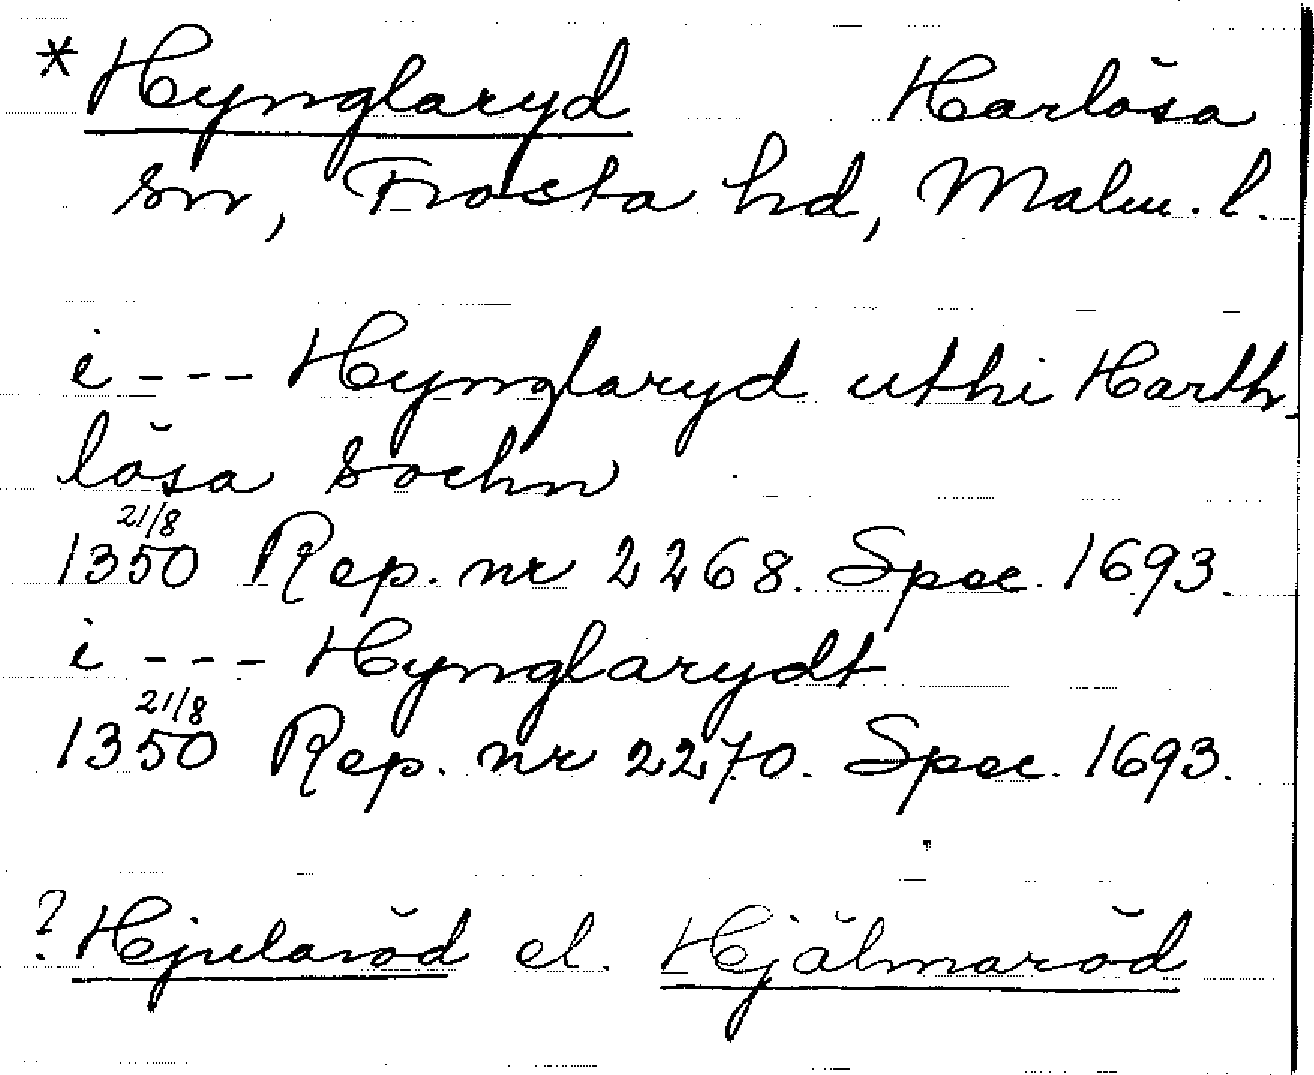 * Hynglaryd Harlösa
sn, Frosta hd, Malm. l.
i --- Hynglaryd uthi Harth-
lösa sochn
21/8
1350 Rep. nr 2268. Spec. 1693.
i --- Hynglarydt
21/8
1350 Rep. nr 2270. Spec. 1693.
? Hjularöd el. Hjälmaröd